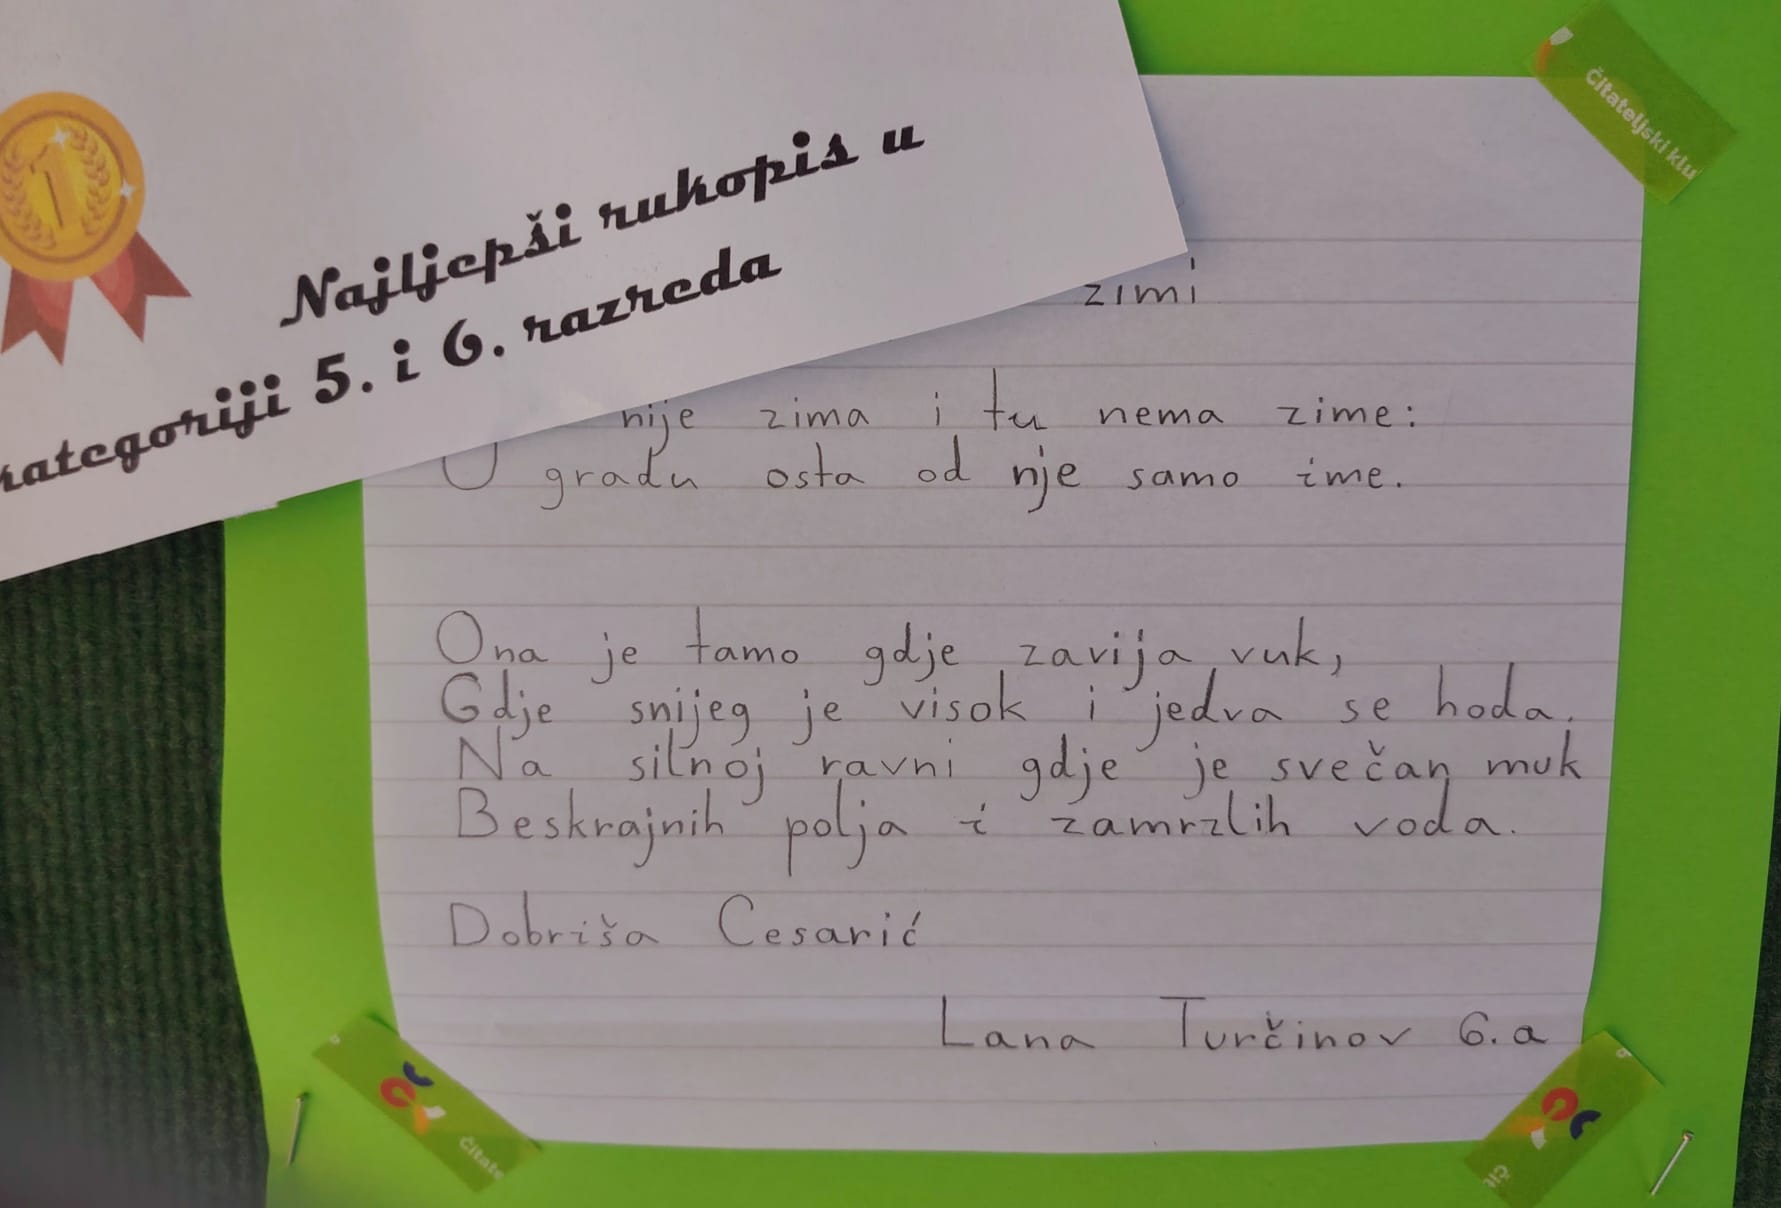 Najljepši rukopis u
kategoriji 5. i 6. razreda
Čitateljski klu
zimi
nije zima i tu nema zime:
U gradu osta od nje samo ime.
Ona je tamo gdje zavija vuk,
Gdje snijeg je visok i jedva se hoda.
Na silnoj ravni gdje je svečan muk
Beskrajnih polja i zamrzlih voda.
Dobriša Cesarić
Lana Turčinov 6.a
Čitate
Čit